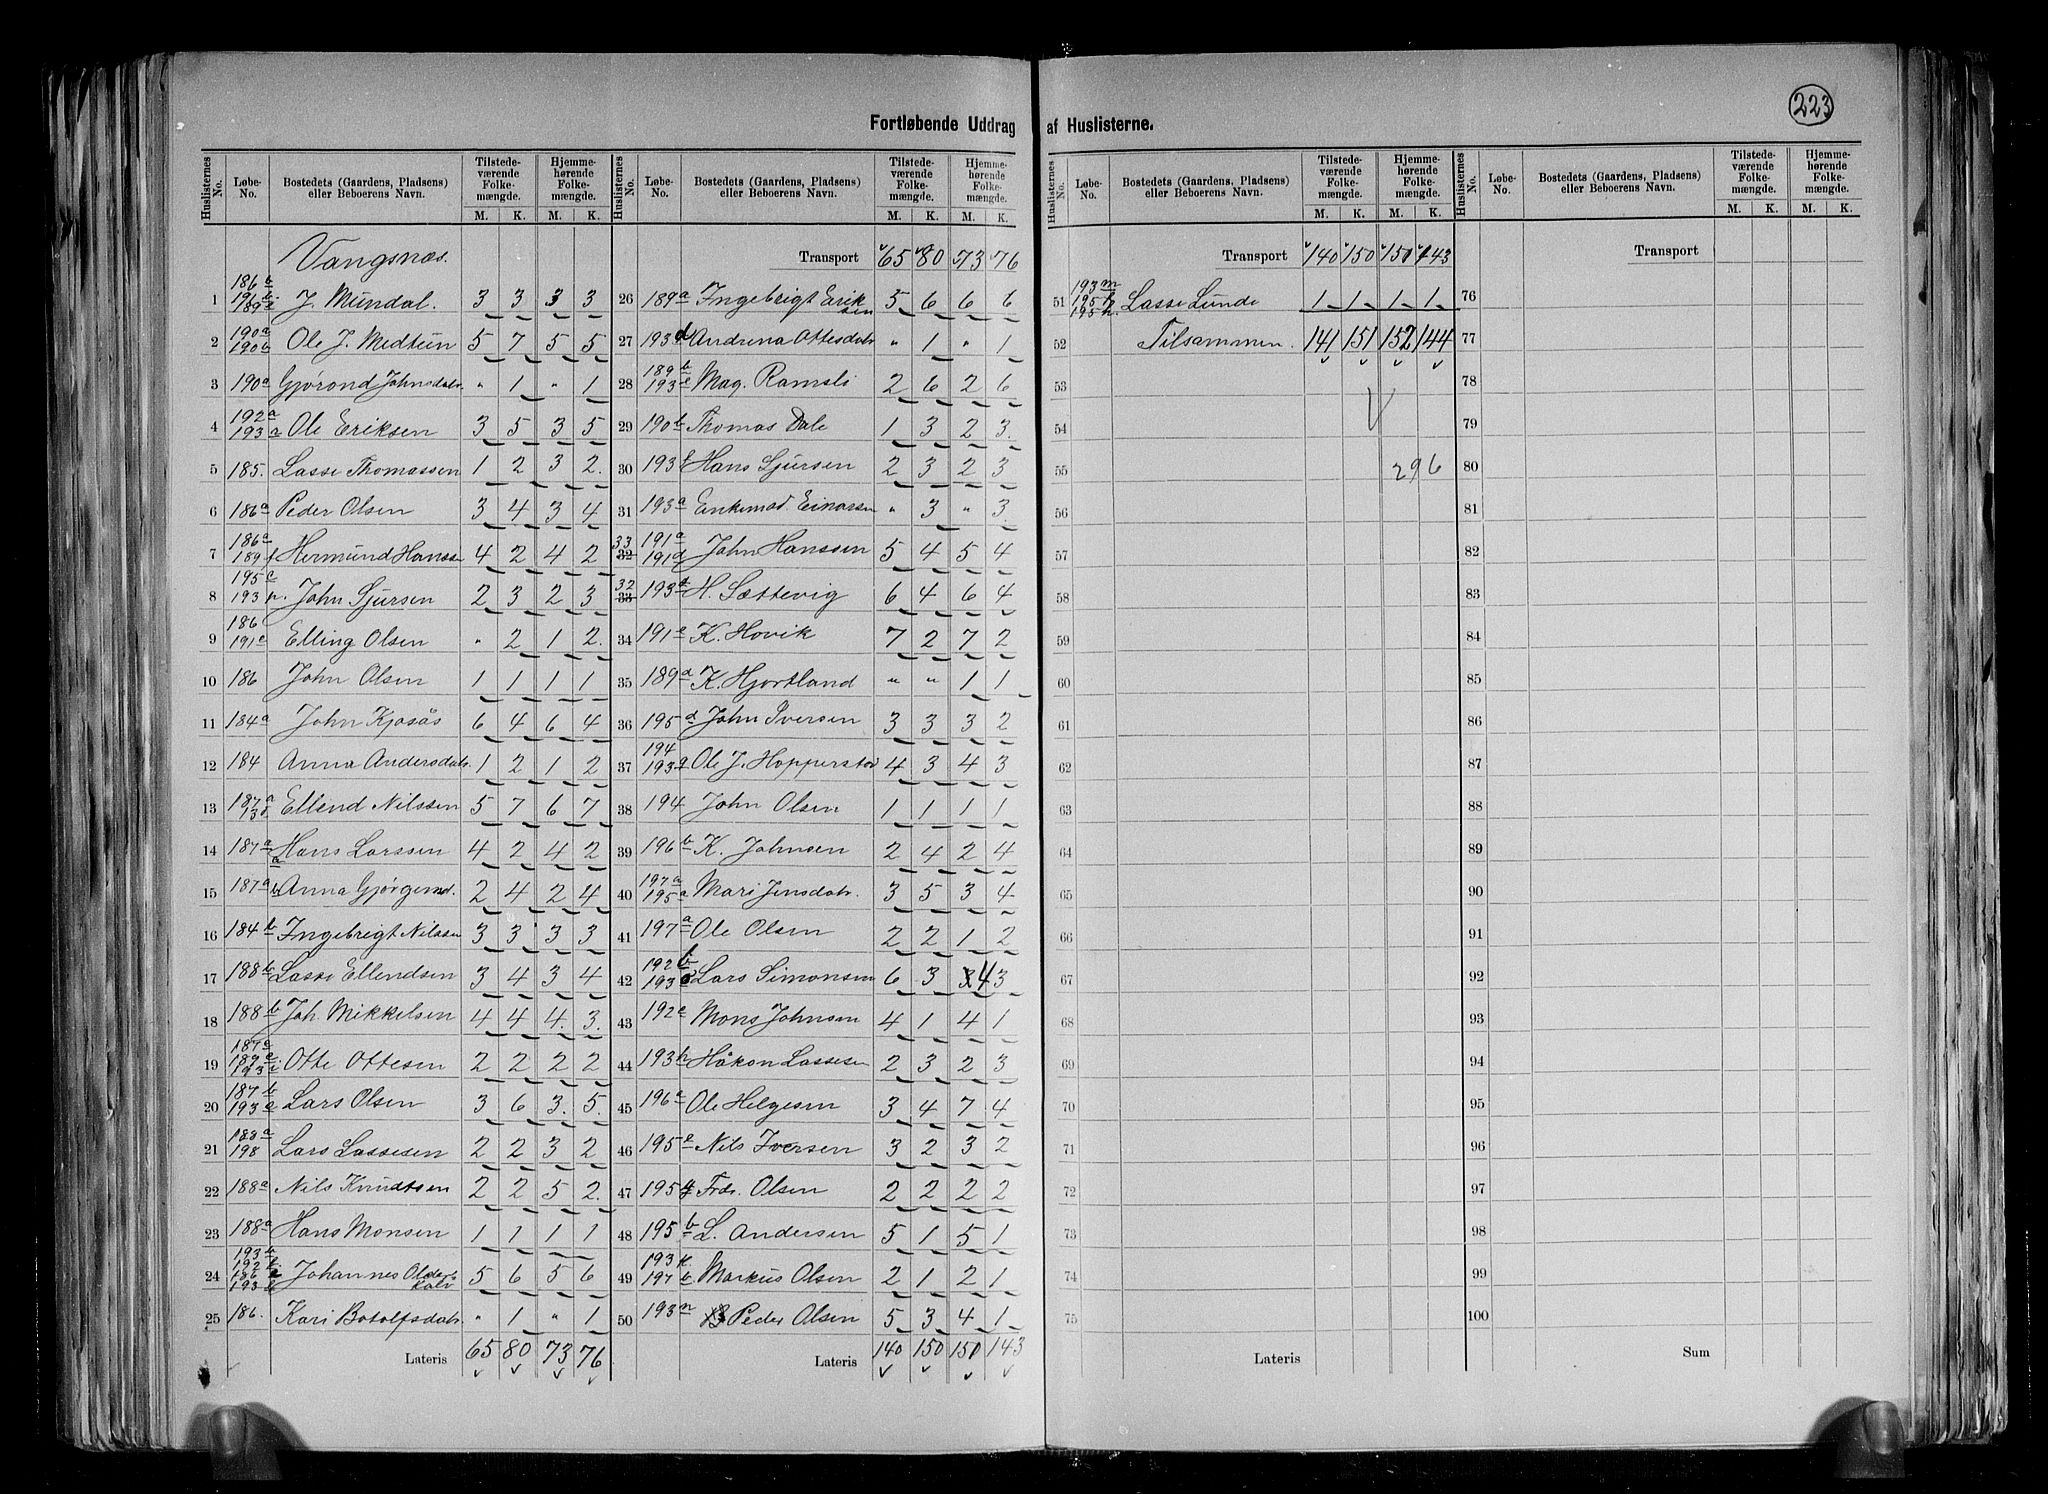 223
Fortløbende Uddrag af Huslisterne.
Huslisternes No. Løbe-No. Bostedets (Gaardens, Pladsens) eller Beboerens Navn. Tilstedeværende Folkemængde. M. K. Hjemmehørende Folkemængde. M. K.
Vangsnæs.
1 J. Mundal. 3 3 3 3
2 190a 190b Ole J. Medtun 5 7 5 5
3 190a Gjørond Johnsdatr. " 1 " 1
4 192a 193a Ole Eriksen 3 5 3 5
5 185. Lasse Thomassen 1 2 3 2.
6 186a Peder Olsen 3 4 3 4
7 186a 189f Hermund Hanss 4 2 4 2
8 195c 193p. John Sjursen 2 3 2 3
9 186 191c Elling Olsen " 2 1 2.
10 186 John Olsen 1 1 1 1
11 184a John Kjosås 6 4 6 4
12 184 Anna Andersdatr. 1 2 1 2
13 187a Ellend Nilssen 5 7 6 7
14 187a Hans Larssen 4 2 4 2
15 187a Anna Gjørgensd. 2 4 2 4
16 184b Ingebrigt Nilssen 3 3 3 3
17 188b Lasse Ellendsen 3 4 3 4
18 188b Joh. Mikkelsen 4 4 4. 3.
19 Otte Ottesen 2 2 2 2
20 187b 193e Lars Olsen 3 6 3. 5.
21 188a 198 Lars Lassesen 2 2 3 2
22 188a Nils Knudtsen 2 2 5 2.
23 188a Hans Monsen 1 1 1 1
24 Johannes Olders kalv 5 6 5 6
25 186. Kari Botolfsdatr. " 1 " 1
Lateris 65 80 73 76
Huslisternes No. Løbe-No. Bostedets (Gaardens, Pladsens) eller Beboerens Navn. Tilstedeværende Folkemængde. M. K. Hjemmehørende Folkemængde. M. K.
Transport 65 80 73 76
26 189a Ingebrigt Eriksen 5 6 6 6
27 193d Andrina Ottesdatr " 1 " 1
28 189b 193c Mag. Ramsli 2 6 2 6
29 190b Thomas Dale 1 3 2 3.
30 193f Hans Sjursen 2 3 2 3
31 193a Enkemad. Einarsen " 3 " 3.
33 32 191a 191d John Hanssen 5 4 5 4
32 33 193d H. Sættevig 6 4 6 4
34 191e K. Hovik 7 2 7 2
35 189d K. Hjortland " " 1 1
36 195d John Iversen 3 3 3 2
37 194 193g Ole J. Hopperstad 4 3 4 3
38 194 John Olsen 1 1 1 1
39 196b K. Johnsen 2 4 2 4
40 197a 195a Mari Jensdatr. 3 5 3 4
41 197a Ole Olsen 2 2 1 2
42 192b Lars Simonsen 6 3 3 4 3
43 192c Mons Johnsen 4 1 4 1
44 193h Håkon Lassesen 2 3 2 3
45 196a Ole Helgesen 3 4 7 4
46 195e Nils Iversen 3 2 3 2
47 195g Frdr. Olsen 2 2 2 2
48 195b L. Andersen 5 1 5 1
49 193k 197b Markus Olsen 2 1 2 1
50 193n Peder Olsen 5 3 4 1
Lateris 140 150 150 143
Huslisternes No. Løbe-No. Bostedets (Gaardens, Pladsens) eller Beboerens Navn. Tilstedeværende Folkemængde. M. K. Hjemmehørende Folkemængde. M. K.
Transport 140 150 150 143
51 193m Lasse Lunde 1 1 1 1
52 Tilsammen. 141 151 152 144
53
54
55 296
56
57
58
59
60
61
62
63
64
65
66
67
68
69
70
71
72
73
74
75
Lateris
Huslisternes No. Løbe-No. Bostedets (Gaardens, Pladsens) eller Beboerens Navn. Tilstedeværende Folkemængde. M. K. Hjemmehørende Folkemængde. M. K.
Transport
76
77
78
79
80
81
82
83
84
85
86
87
88
89
90
91
92
93
94
95
96
97
98
99
100
Sum